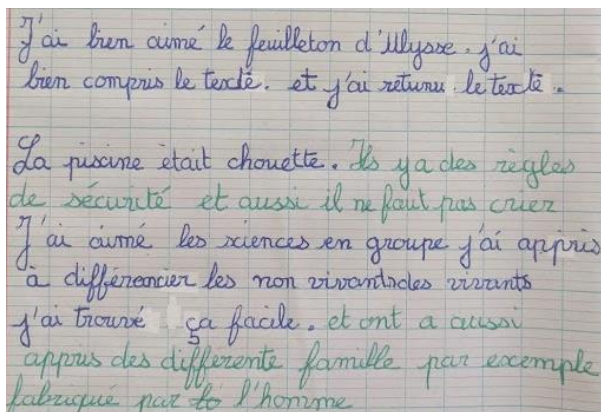 J'ai bien aimé le feuilleton d'Ulysse. j'ai
bien compris le texte. et j'ai retunu le texte.
La piscine était chouette. Ils ya des règles
de sécurité et aussi il ne faut pas crier
J'ai aimé les siences en groupe j'ai appris
à différencier les non vivants des vivants
j'ai trouvé ça facile. et ont a aussi
appris des differente famille par exemple
fabriqué par l'homme